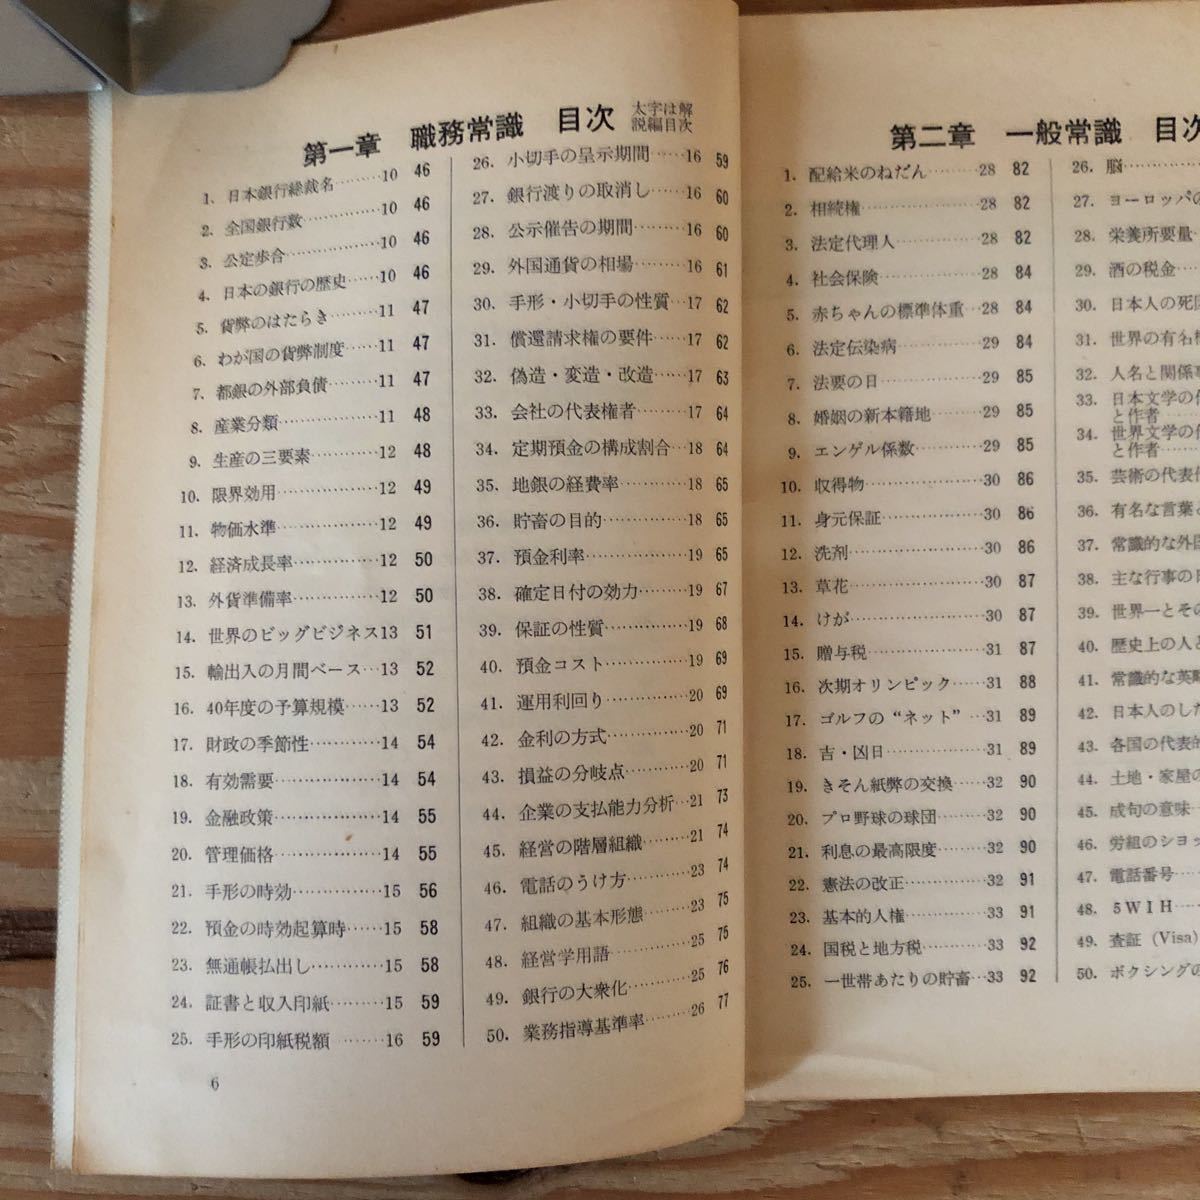 第一章　職務常識　目次 太字は解説編目次
1. 日本銀行総裁名………10 46
2. 全国銀行数…………10 46
3. 公定歩合……………10 46
4. 日本の銀行の歴史……10 46
5. 貨幣のはたらき………11 47
6. わが国の貨幣制度……11 47
7. 都銀の外部負債………11 47
8. 産業分類……………11 48
9. 生産の三要素…………12 48
10. 限界効用……………12 49
11. 物価水準……………12 49
12. 経済成長率…………12 50
13. 外貨準備率…………12 50
14. 世界のビッグビジネス13 51
15. 輸出入の月間ベース…13 52
16. 40年度の予算規模……13 52
17. 財政の季節性…………14 54
18. 有効需要……………14 54
19. 金融政策……………14 55
20. 管理価格……………14 55
21. 手形の時効…………15 56
22. 預金の時効起算時……15 58
23. 無通帳払出し…………15 58
24. 証書と収入印紙………15 59
25. 手形の印紙税額………16 59
26. 小切手の呈示期間……16 59
27. 銀行渡りの取消し……16 60
28. 公示催告の期間………16 60
29. 外国通貨の相場………16 61
30. 手形・小切手の性質…17 62
31. 償還請求権の要件……17 62
32. 偽造・変造・改造……17 63
33. 会社の代表権者………17 64
34. 定期預金の構成割合…18 64
35. 地銀の経費率…………18 65
36. 貯蓄の目的…………18 65
37. 預金利率……………19 65
38. 確定日付の効力………19 67
39. 保証の性質…………19 68
40. 預金コスト…………19 69
41. 運用利回り…………20 69
42. 金利の方式…………20 71
43. 損益の分岐点…………20 71
44. 企業の支払能力分析…21 73
45. 経営の階層組織………21 74
46. 電話のうけ方…………23 74
47. 組織の基本形態………23 75
48. 経営学用語…………25 75
49. 銀行の大衆化…………25 76
50. 業務指導基準率………26 77
6
第二章　一般常識　目次
1. 配給米のねだん………28 82
2. 相続権………………28 82
3. 法定代理人…………28 82
4. 社会保険……………28 84
5. 赤ちゃんの標準体重…28 84
6. 法定伝染病…………29 84
7. 法要の日……………29 85
8. 婚姻の新本籍地………29 85
9. エンゲル係数…………29 85
10. 収得物………………30 86
11. 身元保証……………30 86
12. 洗剤…………………30 86
13. 草花…………………30 87
14. けが…………………30 87
15. 贈与税………………31 87
16. 次期オリンピック……31 88
17. ゴルフの“ネット”…31 89
18. 吉・凶日……………31 89
19. きそん紙弊の交換……32 90
20. プロ野球の球団………32 90
21. 利息の最高限度………32 90
22. 憲法の改正…………32 91
23. 基本的人権…………33 91
24. 国税と地方税…………33 92
25. 一世帯あたりの貯畜…33 92
26. 脳………
27. ヨーロッパの
28. 栄養所要量…
29. 酒の税金……
30. 日本人の死因
31. 世界の有名
32. 人名と関係事
33. 日本文学の
と作者……
34. 世界文学の
と作者……
35. 芸術の代表
36. 有名な言葉と
37. 常識的な外国
38. 主な行事の
39. 世界一とその
40. 歴史上の人と
41. 常識的な英略
42. 日本人のした
43. 各国の代表的
44. 土地・家屋の
45. 成句の意味…
46. 労組のショッ
47. 電話番号……
48. 5W1H……
49. 査証（Visa）
50. ボクシングの